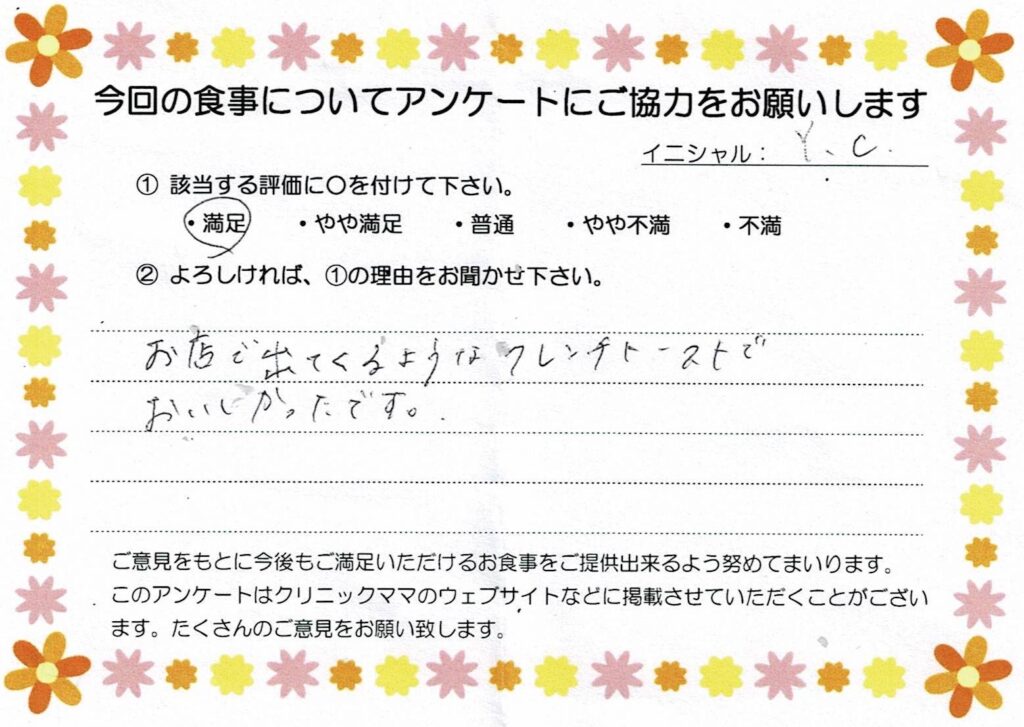 今回の食事についてアンケートにご協力をお願いします
イニシャル： Y. C.
① 該当する評価に〇を付けて下さい。
・満足 ・やや満足 ・普通 ・やや不満 ・不満
② よろしければ、①の理由をお聞かせ下さい。
お店で出てくるようなフレンチトーストで
おいしかったです。
ご意見をもとに今後もご満足いただけるお食事をご提供出来るよう努めてまいります。
このアンケートはクリニックママのウェブサイトなどに掲載させていただくことがござい
ます。たくさんのご意見をお願い致します。